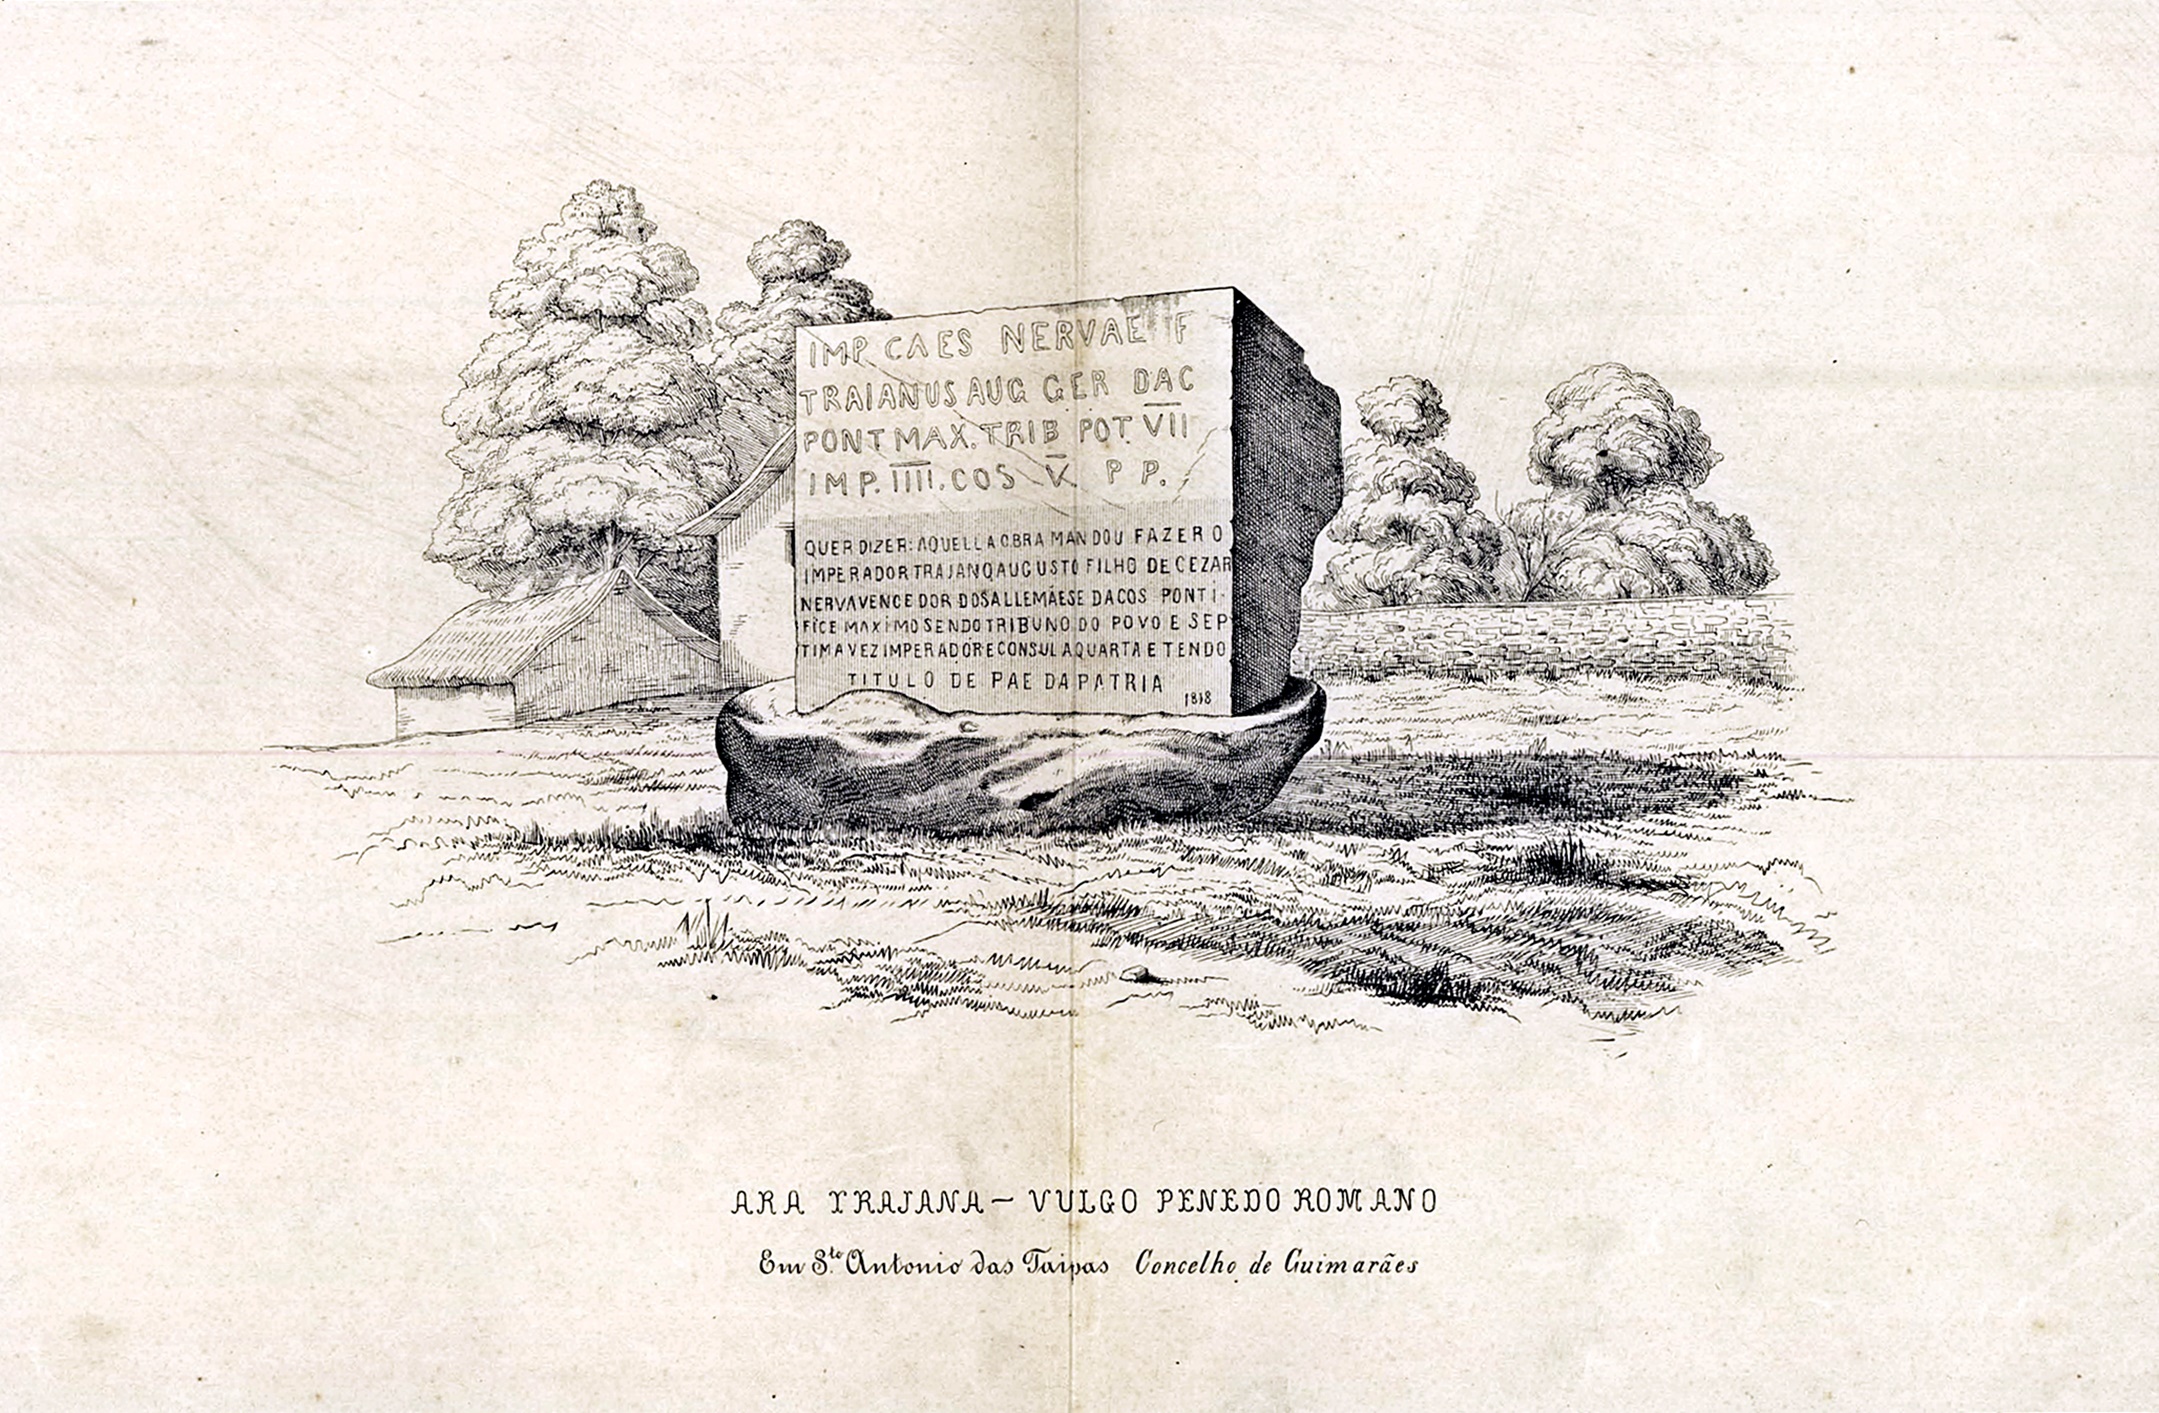 IMP CAES NERVAE F
TRAIANUS AUG GER DAC
PONT MAX. TRIB POT. V̅I̅I̅
IMP. I̅I̅I̅I̅. COS V̅. P P.
QUER DIZER: AQUELLA OBRA MANDOU FAZER O
IMPERADOR TRAJANO AUGUSTO FILHO DE CEZAR
NERVA VENCEDOR DOS ALLEMÃES E DACOS PONTI-
FICE MAXIMO SENDO TRIBUNO DO POVO E SEP
TIMA VEZ IMPERADOR E CONSUL A QUARTA E TENDO
TITULO DE PAE DA PATRIA
1818
ARA TRAJANA – VULGO PENEDO ROMANO
Em S.to Antonio das Taipas Concelho de Guimarães